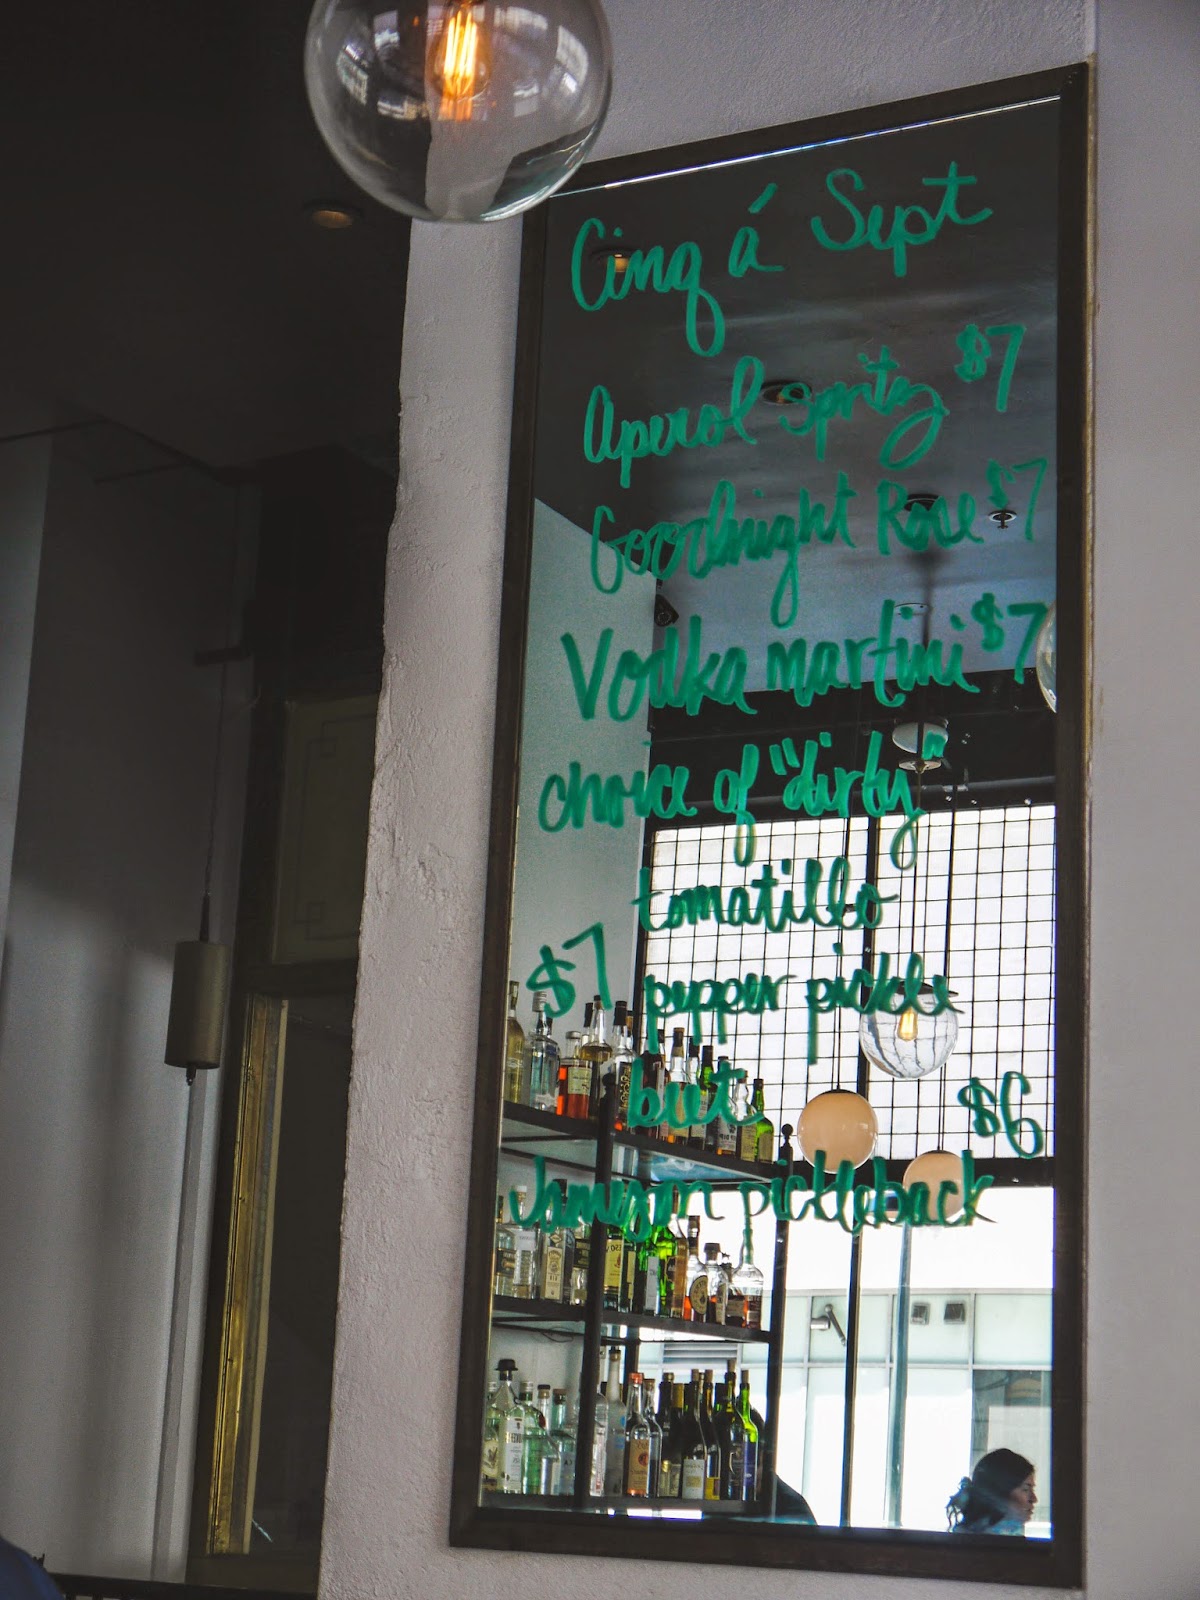 Cinq á Sept
Aperol spritz $7
Goodnight Rose $7
Vodka martini $7
choice of "dirty"
tomatillo
$7 pepper pickle
beet $6
Jameson pickleback